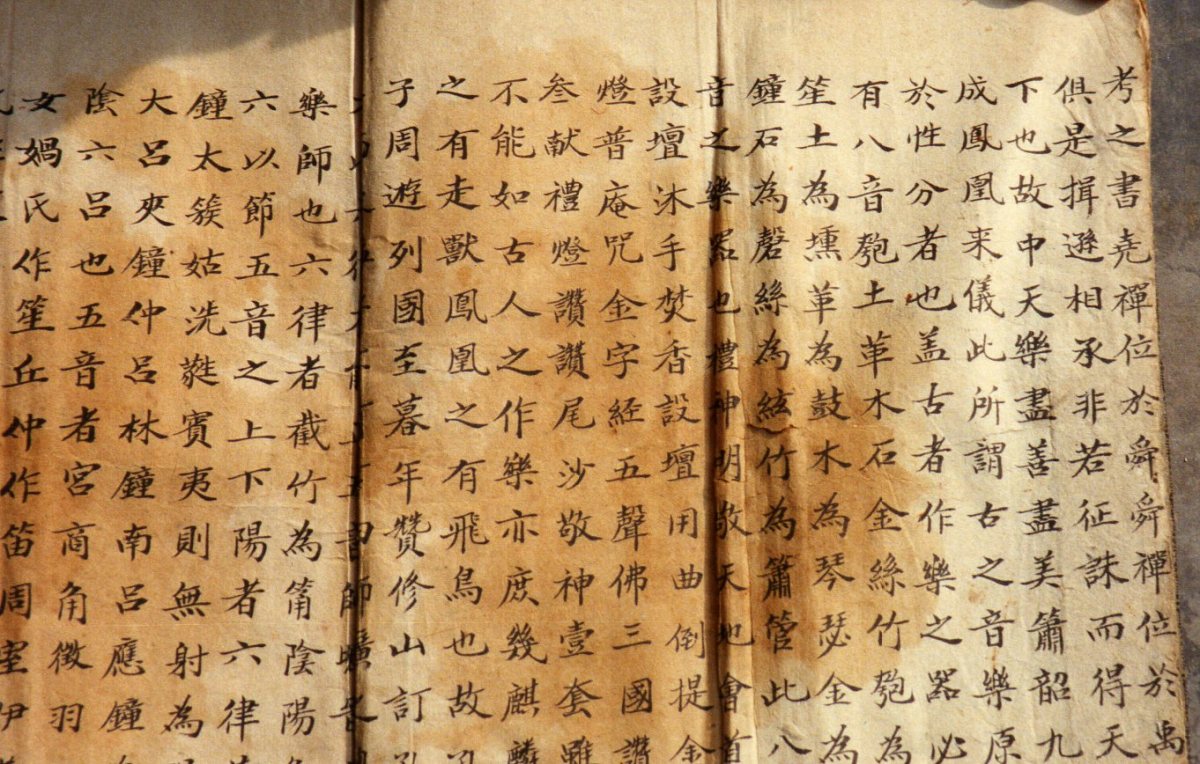 考之書堯禪位於舜舜禪位於禹
俱是揖遜相承非若征誅而得天
下也故中天樂盡善盡美簫韶九
成鳳凰来儀此所謂古之音樂原
於性分者也盖古者作樂之器必
有八音匏土革木石金絲竹匏為
笙土為壎革為鼓木為琴瑟金為
鐘石為磬絲為絃竹為簫管此八
音之樂器也禮神明敬天地會首
設壇沐手焚香設壇用曲倒提金
燈普庵咒金字經五聲佛三國讚
叁献禮燈讚讚尾沙敬神壹套雖
不能如古人之作樂亦庶幾麒麟
之有走獸鳳凰之有飛鳥也故孔
子周遊列國至暮年贊修山訂
師曠
樂師也六律者截竹為筩陰陽
六以節五音之上下陽者六律
鐘太簇姑洗蕤賓夷則無射為
大呂夾鐘仲呂林鐘南呂應鐘
陰六呂也五音者宮商角徵羽
女媧氏作笙丘仲作笛周室伊